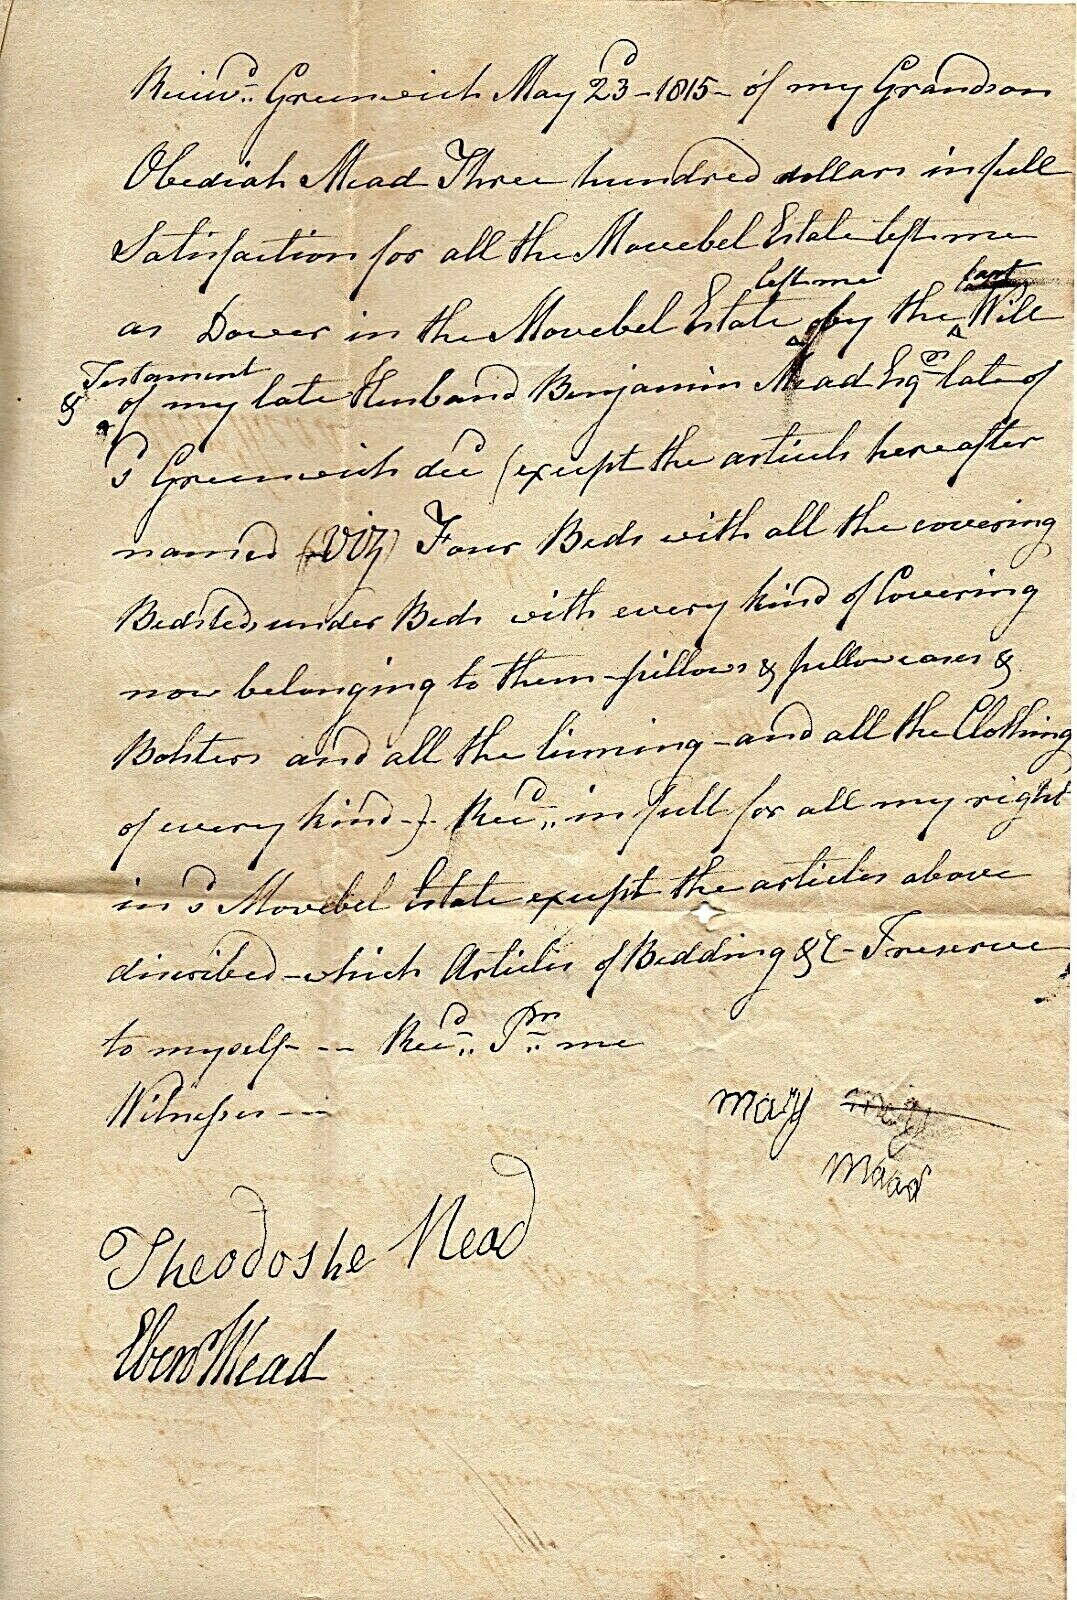 Reciev.d Greenwich May 23d - 1815 - of my Grandson
Obediah Mead Three hundred dollars in full
Satisfaction for all the Movebel Estate left me
as Dower in the Movebel Estate left me by the last Will
& Testament of my late Husband Benjamin Mead Esqr late of
sd Greenwich decd (except the articels hereafter
named (viz) Four Beds with all the covering
Bedsteds under Beds with every kind of Covering
now belonging to them - pillows & pillowcases &
Bolsters and all the linning - and all the Clothing
of every kind -) - Recd in full for all my right
in sd Movebel Estate except the articles above
discribed - which Articles of Bedding &c - I reserve
to myself - -- Recd Pr me
Witnesses ---
mary
mead
Theodoshe Mead
Ebenr Mead